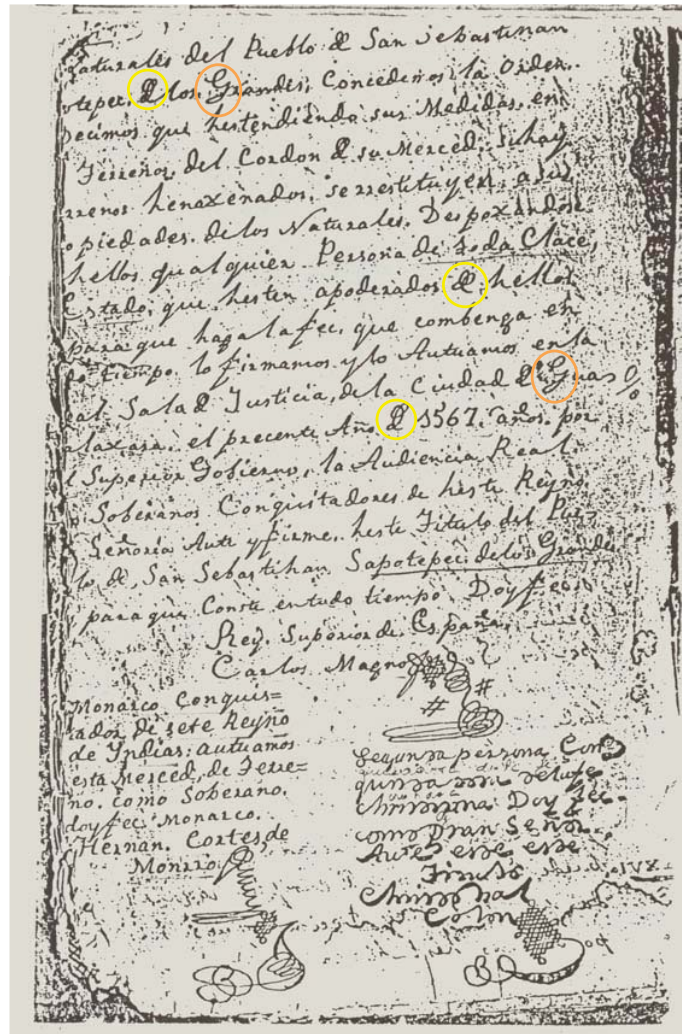 naturales del Pueblo de San sebastihan
otepec, de los Grandes, Concedemos la Orden.
Decimos que hestendiendo sus Medidas, en
Terrenos, del Cordon de su Merced, si hay
rrenos henaxenados, se rrestituyen a sus
opiedades. de los Naturales. Despoxandose
hellos qualquier Persona de toda Clace,
Estado, que hesten apoderados de, hellos
para que haga la fee, que combenga en
do tiempo. lo firmamos y lo Autuamos en la
eal Sala de Justicia, de la Ciudad de Guas
alaxara. el precente Año de 1567. años. por
l Superior Gobierno, la Audiencia Real.
Soberanos Conquistadores de heste Reyno
Señoria Aute y firme. heste Titulo del Pue=
lo de, San Sebastihan Sapotepec de los Grandes
para que Conste en tudo tiempo. Doy fee
Rey. Superior de España,
Carlos Magno
Monarco Conquis=
tador de sete Reyno
de Yndias: autuamos
esta Merced, de Terre=
no. como Soberano.
doy fee Monarco.
Hernan. Cortes de
Monrro
Segunda persona
Doy fee
como Gran Señor
Colon